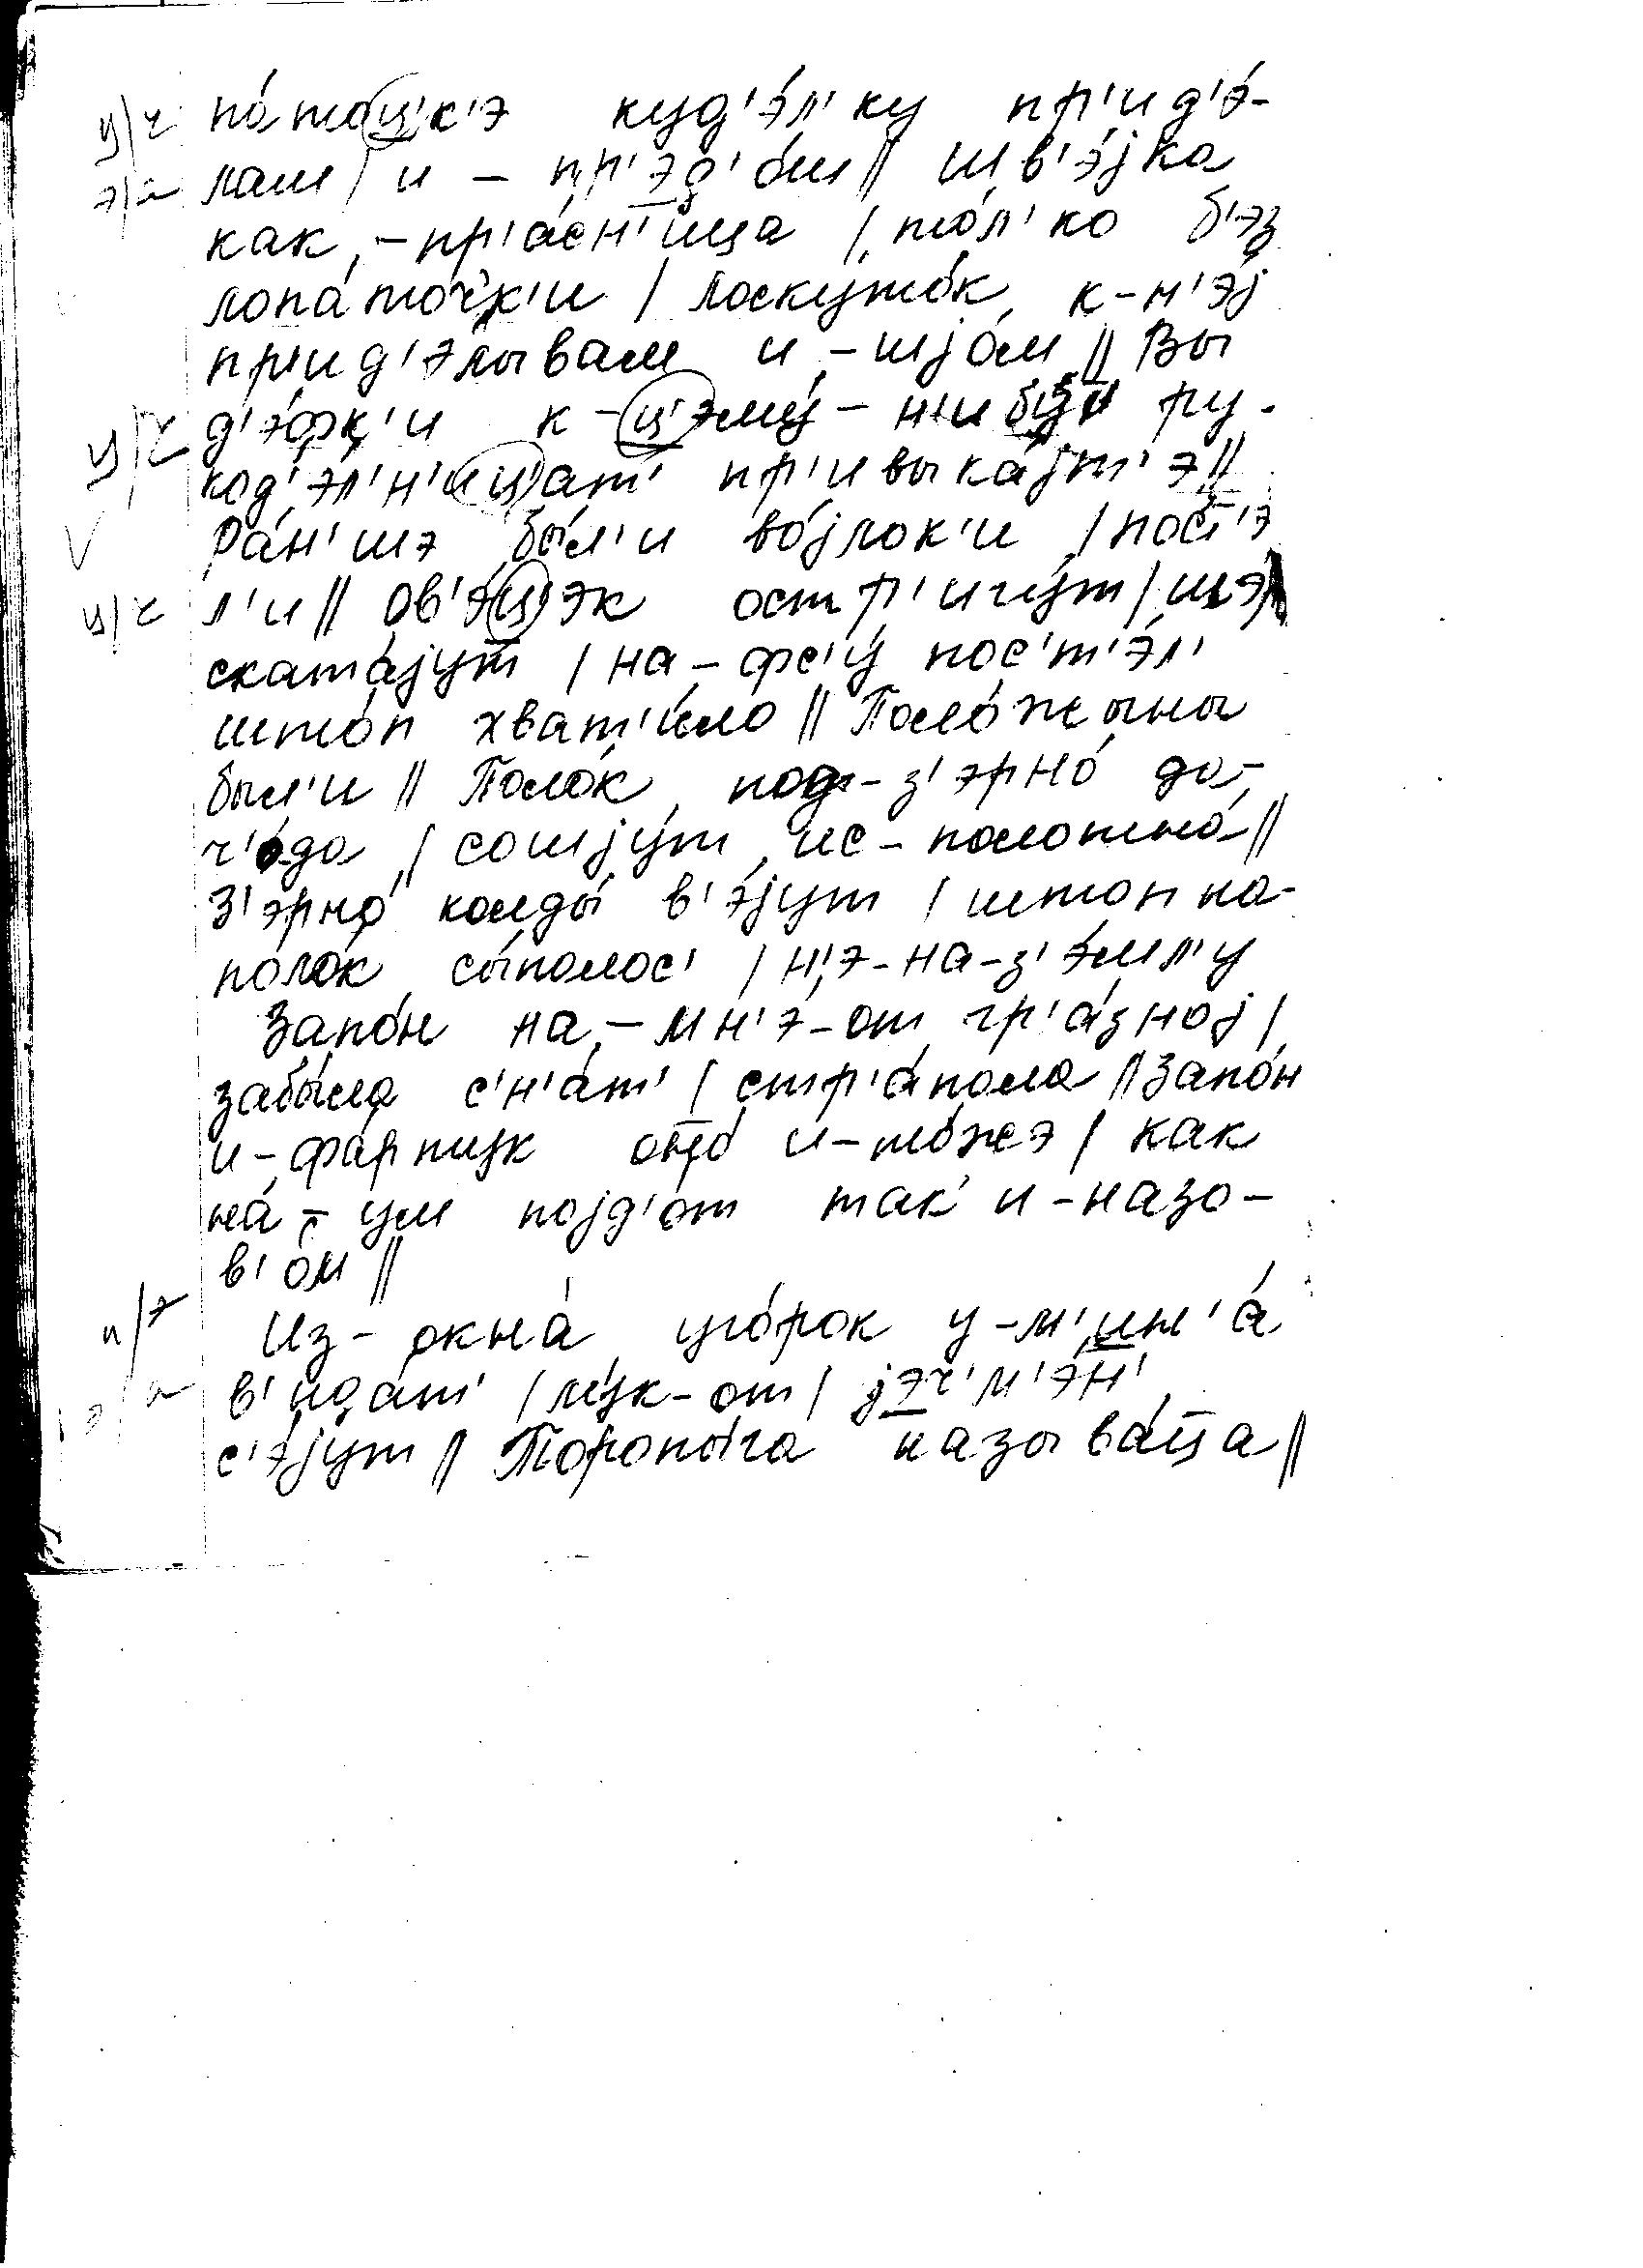 ц/ч па́тоц'к'э куд'э́л'ку пр'ид'э́-
э/а лам / и - пр'эд'о́м // шв'э́jка
как - пр'а́сн'ица / то́л'ко б'эз
лопа́точ'к'и / лоскуто́к к-н'эj
пр'ид'элывам и - шjо́м // Вы
ц/ч д'э́фк'и к - ц'эму́ - н'ибут' ру-
код'э́л'н'иц'ат' пр'ивыка́jт'э //
V Ра́н'шэ бы́л'и во́jлок'и / пост'э
ц/ч л'и // ов'э́ц'эк остр'игу́т / шэ
ската́jут / на - фс'у́ пос'т'э́л'
што́п хват'и́ло // Поло́жыны
был'и // Поло́к под-з'эрно́ до-
ч'о́до / сошjу́т ис - полотна́ //
З'эрно́ колды́ в'э́jут / штоп на-
поло́к сы́полос' / н'э-на-з'э́мл'у
Запо́н на - мн'э́-от гр'а́зноj /
забы́ла с'н'ат' / стр'а́пола // Запо́н
и - фа́ртук одно́ и-то́жэ / как
на́ - ум поjд'о́т так и - назо-
в'о́м //
и/э Из - окна́ уго́рок у-м'ин'а́
э/а в'ида́т' / лук-от / jэч'м'э́н'
с'э́jут // Торопы́га называ́ца //